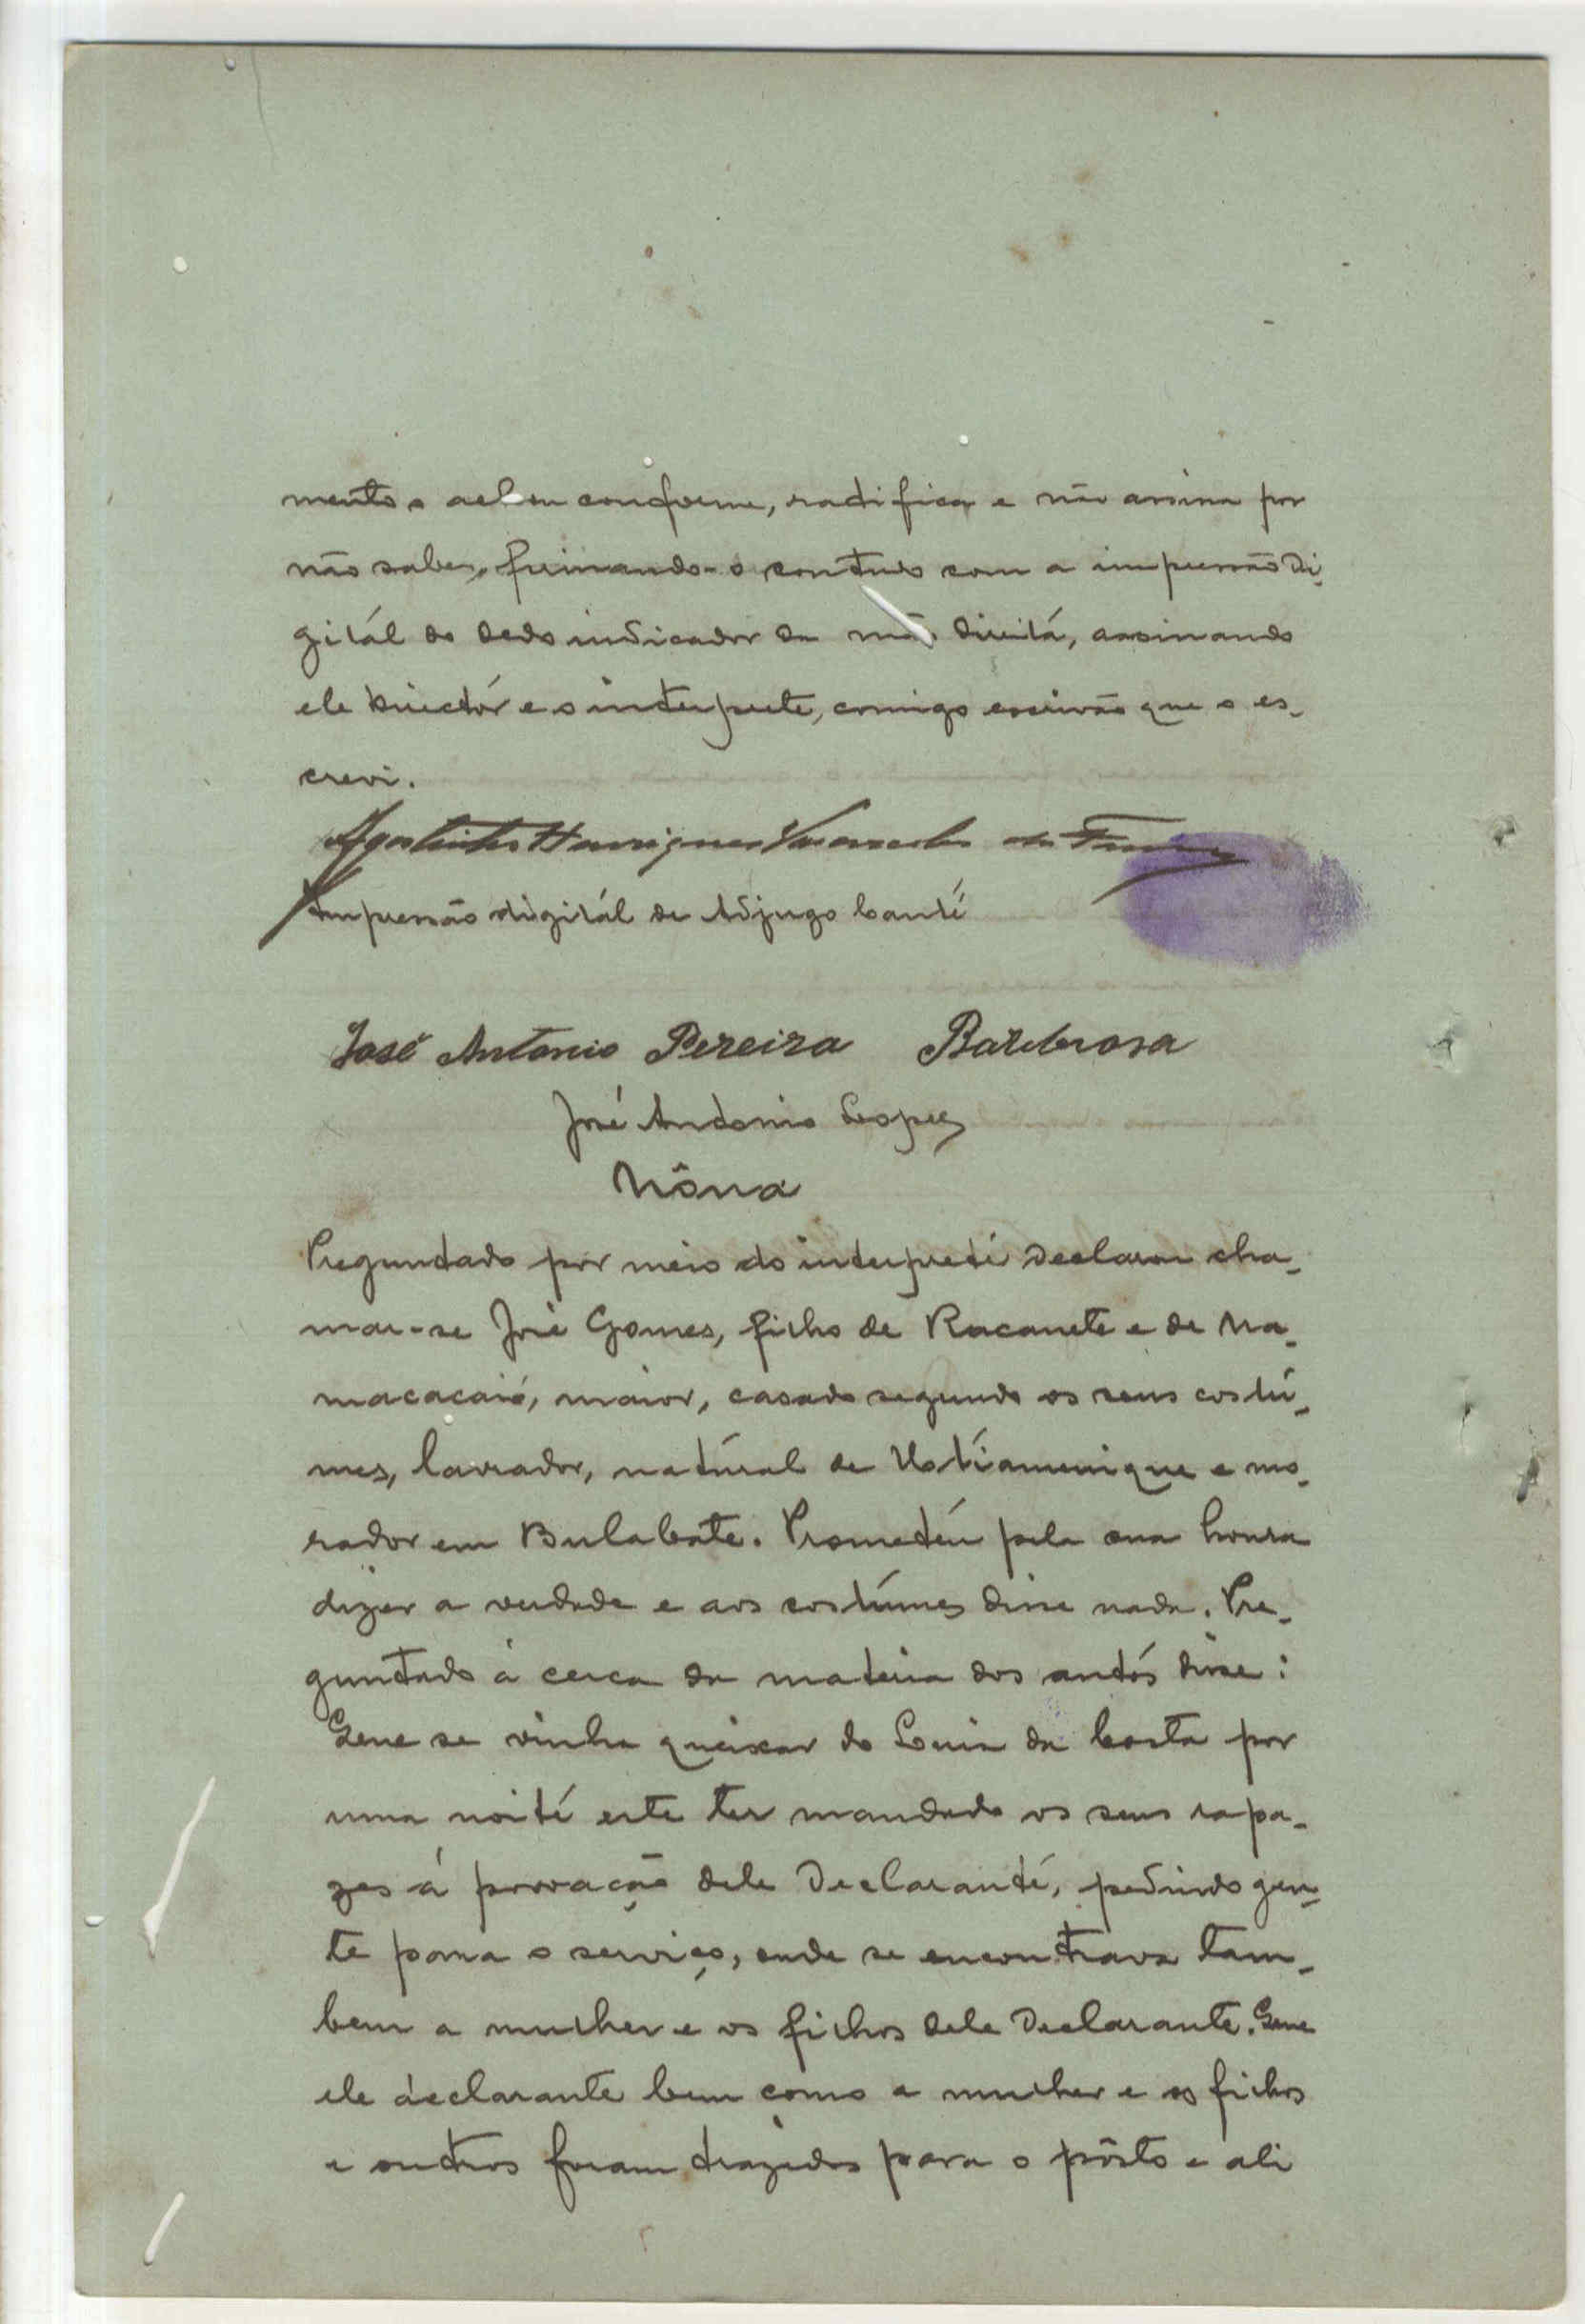 mento o achou conforme, radifica e não assina por
não saber, firmando-o contudo com a impressão di-
gitál do dedo indicador da mão direitá, assinando
ele Directór e o interprete, comigo escrivão que o es-
crevi.
Agostinho Henriques da
Impressão digitál de Adjugo Canté
José Antonio Pereira Barbrosa
José Antonio Lopes
Nôna
Preguntado por meio do interpreté declarou cha-
mar-se José Gomes, filho de Racanete e de Na-
macacaió, maior, casado segundo os seus costú-
mes, lavrador, natúral de e mo-
rador em Bulabate. Prometéu pela sua honra
dizer a verdade e aos costúmes disse nada. Pre-
guntado á cerca da materia dos autós disse:
Que se vinha queixar do Luis da Costa por
uma noité este ter mandado os seus rapa-
zes á provação dele declaranté, pedindo gen-
te para o serviço, onde se encontrava tam-
bem a mulher e os filhos dele declarante. Que
ele declarante bem como a mulher e os filhos
e outros foram trazidos para o pôsto e ali